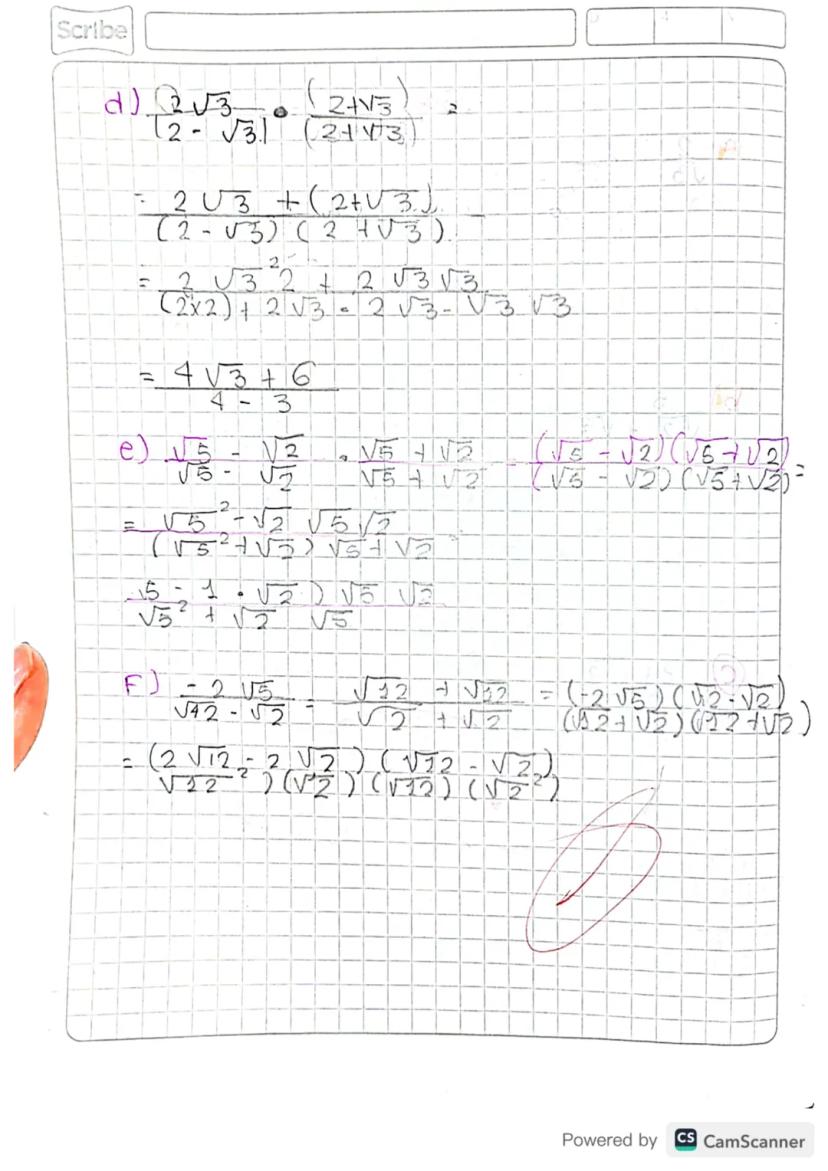 Scribe
d) 2√3/(2 - √3) • (2+√3)/(2+√3) =
= 2√3 + (2+√3)/(2 - √3)(2 + √3)
= 2√3² 2 + 2√3 √3/(2x2) + 2√3 - 2√3 - √3 √3
= 4√3 + 6/4 - 3
e) √5 - √2/√5 - √2 • √5 + √2/√5 + √2 = (√5 - √2)(√5 + √2)/(√5 - √2)(√5 + √2) =
= √5² - √2 √5 √2/(√5² + √2) √5 + √2
5 - 1 • √2) √5 √2/√5² + √2 √5
F) -2√5/√12 - √2 = √12 + √12/√2 + √2 = (-2√5)(√12 - √2)/(√12 + √2)(√12 + √2)
= (2√12 - 2√2)(√12 - √2)/√12²)(√2)(√12)(√2²)
Powered by CS CamScanner